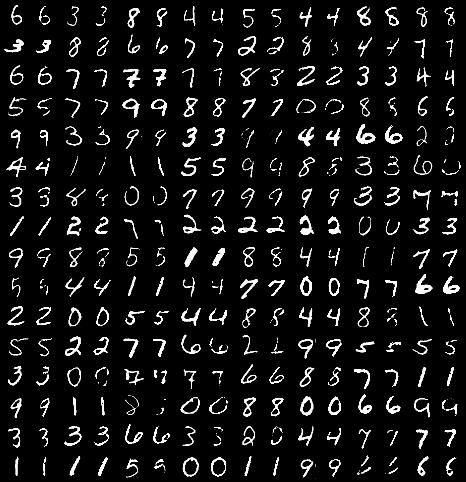 6 6 3 3 8 8 4 4 5 5 4 4 8 8 8 8
3 3 8 8 6 6 7 7 2 2 8 3 4 4 7 7
6 6 7 7 7 7 7 7 8 8 2 2 3 3 4 4
5 5 7 7 9 9 8 8 7 7 0 0 8 8 6 6
9 9 3 3 9 9 3 3 9 1 4 4 6 6 2 2
4 4 1 1 1 1 5 5 9 9 8 8 3 3 6 0
3 3 8 8 0 0 7 7 9 9 9 9 3 3 7 7
1 1 2 2 7 7 2 2 2 2 2 2 0 0 3 3
9 9 8 8 5 5 1 1 8 8 4 4 1 1 7 7
5 5 4 4 1 1 4 4 7 7 0 0 7 7 6 6
2 2 0 0 5 5 4 4 8 8 4 4 8 8 1 1
5 5 2 2 7 7 6 6 2 1 9 9 5 5 5 5
3 3 0 0 7 7 7 7 6 6 8 8 7 7 1 1
9 9 1 1 8 0 0 8 8 0 0 6 6 9 9
3 3 3 3 6 6 3 3 2 0 4 4 7 7 7 7
1 1 1 1 5 5 0 0 1 1 9 9 6 6